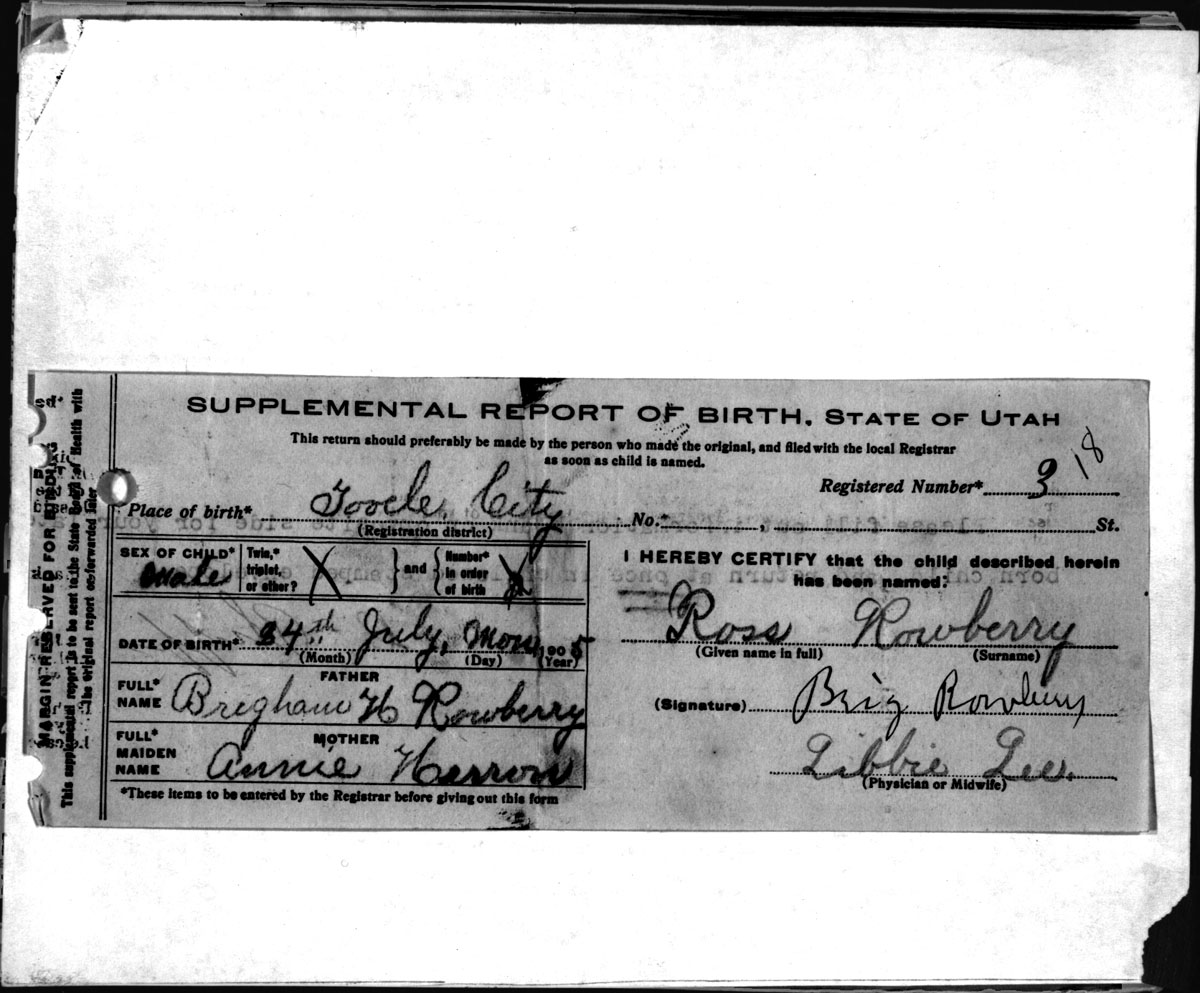 SUPPLEMENTAL REPORT OF BIRTH. STATE OF UTAH
This return should preferably be made by the person who made the original, and filed with the local Registrar
as soon as child is named.
Registered Number* 3 18
Place of birth* Tooele City No.* , St.
(Registration district)
SEX OF CHILD* Male
Twin,*
triplet,
or other? X
} and {
Number*
in order
of birth X
DATE OF BIRTH* 24th July, Mon, 1905
(Month) (Day) (Year)
FATHER
FULL*
NAME Bregham H Rowberry
MOTHER
FULL*
MAIDEN
NAME Annie Herron
*These items to be entered by the Registrar before giving out this form
I HEREBY CERTIFY that the child described herein
has been named:
Ross Rowberry
(Given name in full) (Surname)
(Signature) Brig Rowberry
Libbie Lee.
(Physician or Midwife)
MARGIN RESERVED FOR BINDING
This supplemental report is to be sent to the State Board of Health with
the original report or forwarded later